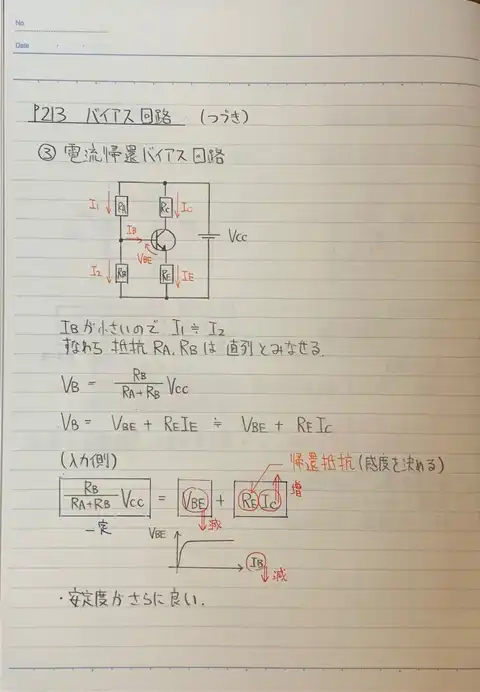 No.
Date
P213 バイアス回路 (つづき)
③ 電流帰還バイアス回路
I1 RA RC IC
IB
VBE
VCC
I2 RB RE IE
IBが小さいので I1 ≒ I2
すなわち 抵抗 RA, RBは 直列とみなせる.
VB = RB/(RA+RB) VCC
VB = VBE + REIE ≒ VBE + REIC
(入力側)
帰還抵抗(感度を決める)
RB/(RA+RB) VCC = VBE + RE IC 増
一定
減
VBE
IB
減
・安定度がさらに良い.